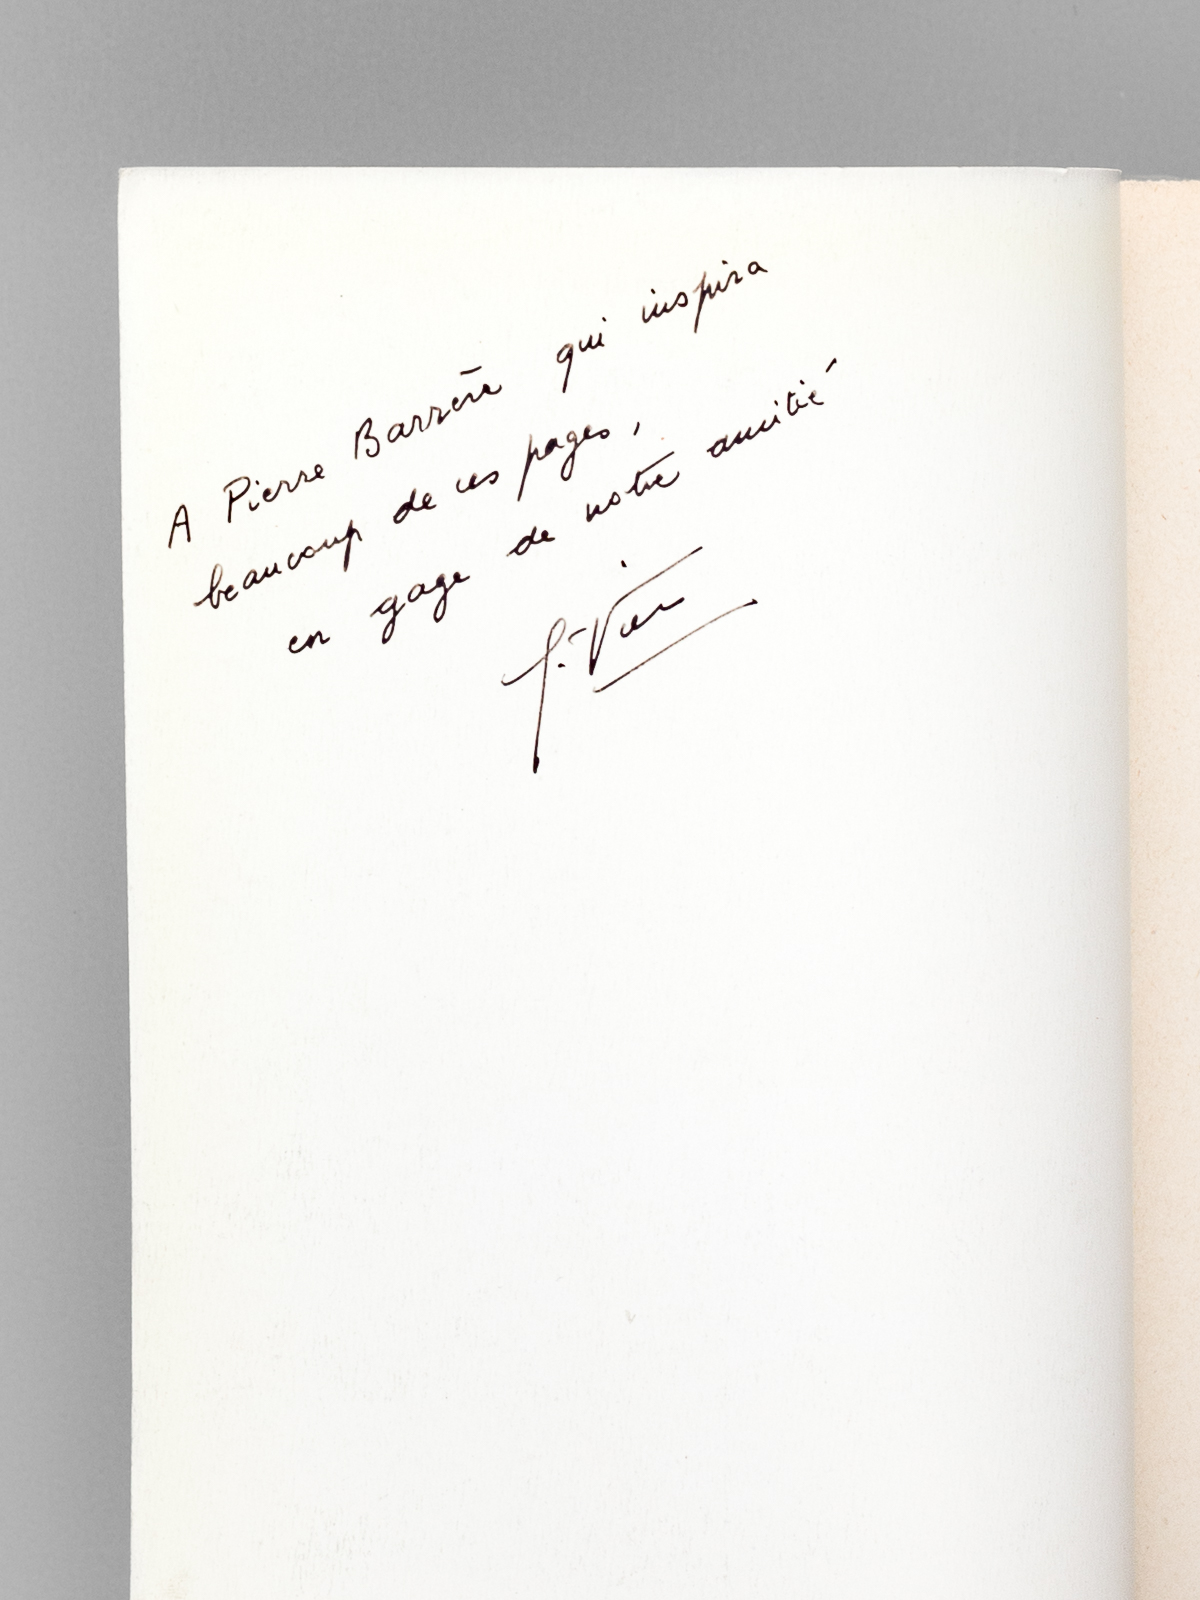 A Pierre Barrère qui inspira
beaucoup de ces pages,
en gage de notre amitié